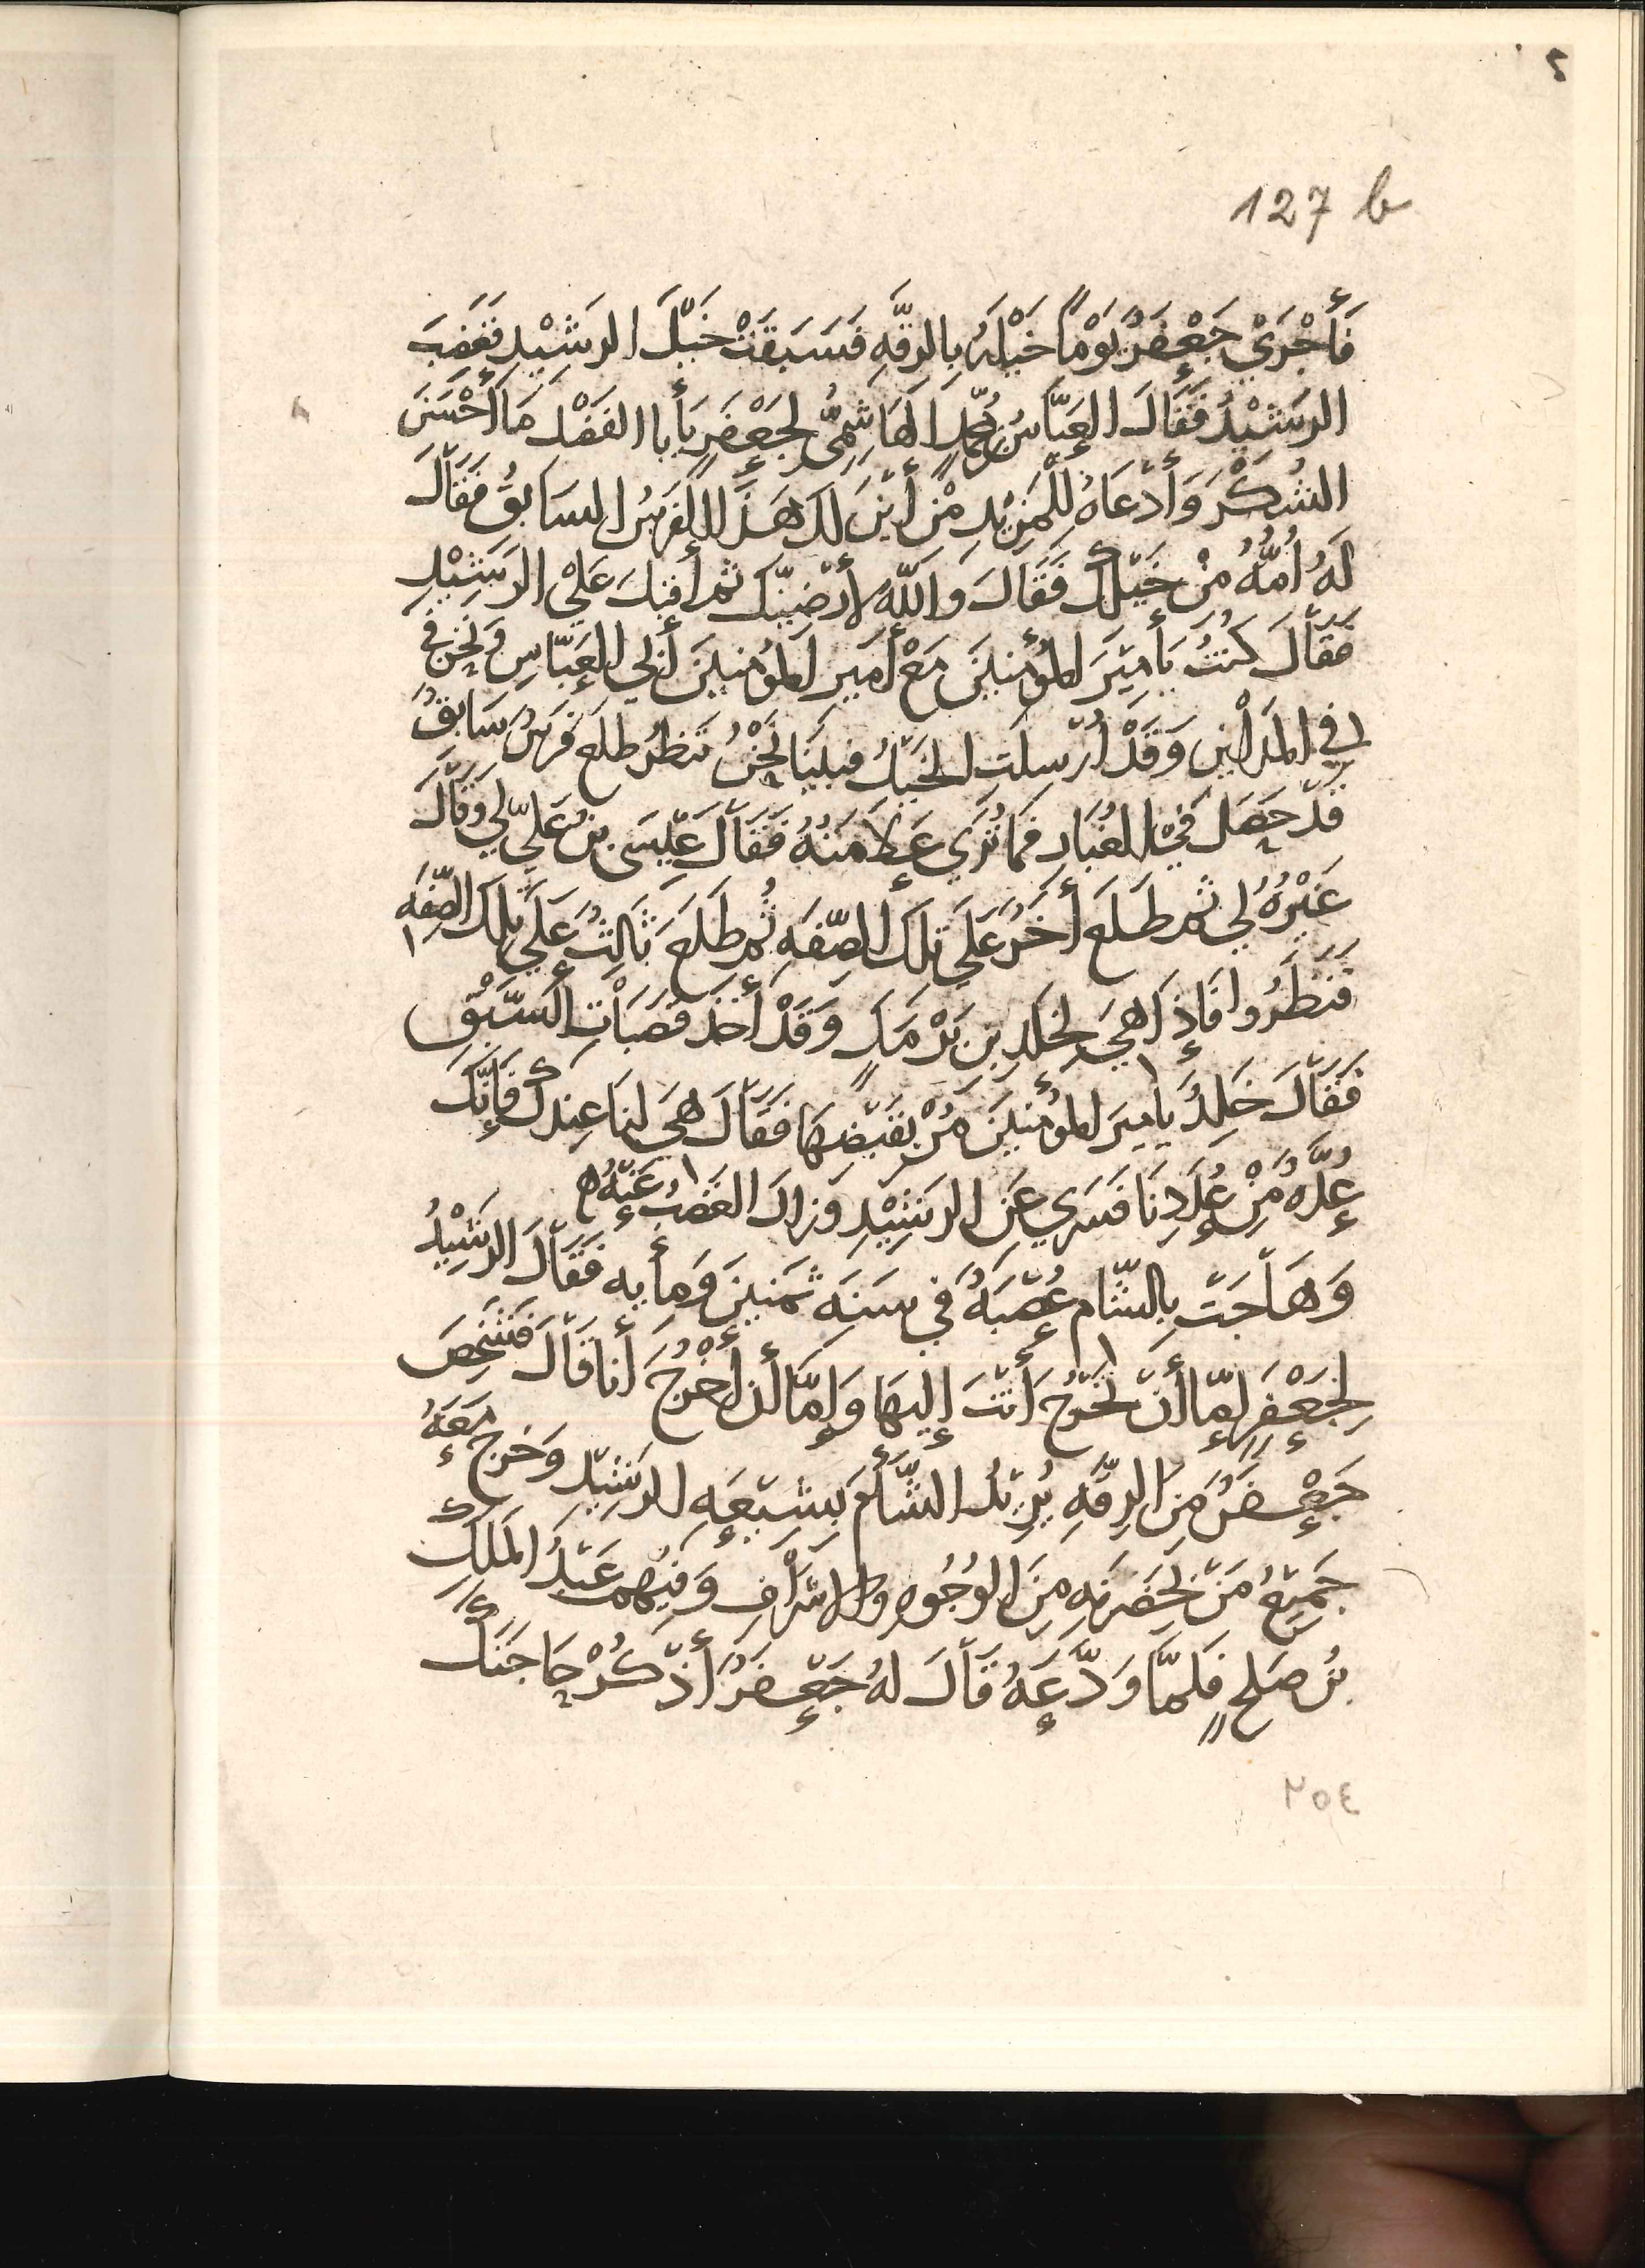 ٢
127 b
فَأَجْرَيْ جَعْفَرُ يَوْماً خَيْلَهُ بِالرقَّهِ فَسَبَقَتْ خَيْلَ الرَشِيْدِ فَغَضِبَ
الرَشِيْدُ فَقَالَ العَبَّاسُ بن مُحَمّدٍ الهَاشِمِيُّ لِجَعْفَرٍ يَأبا الفَضْل مَا أَحْسَنَ
الشُكْرَ وَأَدْعَاهُ لِلْمَزِيْدِ مِنْ أَيْنَ لَكَ هَذَا الفَرَسُ السَابِقُ فَقَالَ
لَهُ أُمُّهُ مِنْ خَيْلِكَ فَقَالَ وَاللَّهِ لأرْضِيَنَّكَ ثم أَقبَلَ عَلَيْ الرَشِيْدِ
فَقَالَ كُنْتُ يَأَمِيْرَ المُؤْمِنِيْنَ مَعْ أَمِيْرِ المُؤْمِنِيْنَ أَبِي العَبَّاسِ وَنَحْنُ فِي
فِي المَدَائِنِ وَقَدْ أُرْسِلَتِ الخَيْلُ فبَيْنَا نَحْنُ نَنْظُرُ طلَعَ فَرَسٌ سَابِقٌ
قَدْ حَصَلَ فِيْ الغُبَارِ فَمَا تُرَي عَلَامَتُهُ فَقَالَ عِيْسَى بنُ عَلِيّ لِي وَقَالَ
غَيْرُهُ لِي ثم طَلَعَ أخَرُ عَلَي تِلكَ الصِّفَهِ ثُم طَلَعَ ثَالِثٌ عَلَي تِلكَ الصِّفَهِ
فَنَظَرُوا فَإِذَا هِيَ لِخَلدِ بنِ بَرْمَكٍ وَقَدْ أَخَذَ قَصَبَاتِ السَبْقِ
فَقَالَ خَلِدُ يأمِيرَ المُؤْمِنِيْنَ مُرْ بِقَبْضِهَا فَقَالَ هِيَ لَنَا عِنْدَكَ فَإِنَّكَ
عُدَّهٌ مِنْ عُدَدِنَا فَسُرِي عَنِ الرَشِيْدِ وَزَالَ الغَضَبُ عَنْهُ ه
وَهَاجَتْ بِالشَّام عُصْبَهٌ فِي سَنَه ثَمَنِينَ وَمِأيه فَقَالَ الرَشِيْدُ
لِجَعْفَرٍ إِمَّا أَنْ تَخْرُجَ أَنْتَ إِلَيهَا وَإِمَّا أن أَخْرُجَ أَنا قَالَ فَشَخَصَ
جَعْفَرُ مِنَ الرقَّهِ يُرِيْدُ الشَّأمَ يشيّعه الرَشِيْد وخَرَجَ مَعَهُ
جَمِيْعُ مَنْ بحَضرَتِهِ مِنَ الوُجُوهِ والاشرَافِ وَفِيْهِم عَبْدُ المَلِكِ
بنُ صَلحٍ فَلَمَّا وَدَّعَهُ قَالَ لهُ جَعْفَرُ أَذْكُرْ حَاجَتَكَ
٢٥٤